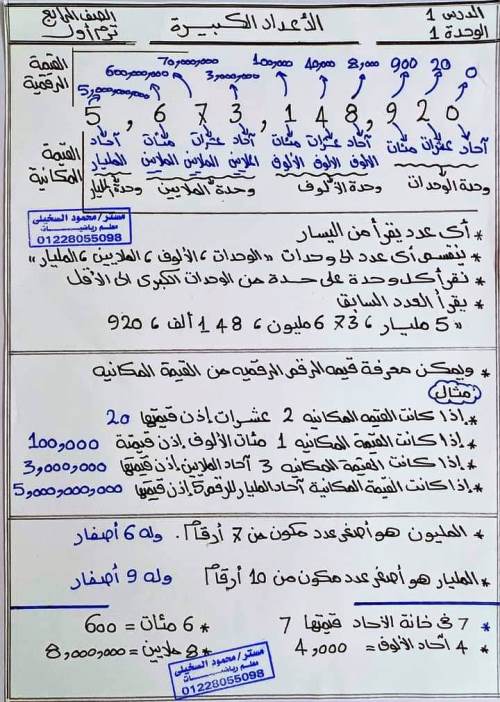 الدرس 1
الوحدة 1
الأعداد الكبيرة
الصف الرابع
ترم أول
القيمة الرقمية
5,000,000,000
600,000,000
70,000,000
3,000,000
100,000
40,000
8,000
900
20
0
5,673,148,920
القيمة المكانية
آحاد المليار
مئات الملايين
عشرات الملايين
آحاد الملايين
مئات الألوف
عشرات الألوف
آحاد الألوف
مئات
عشرات
آحاد
وحدة المليار
وحدة الملايين
وحدة الألوف
وحدة الوحدات
مستر/محمود السخيلى
معلم رياضيات
01228055098
* أى عدد يقرأ من اليسار
* ينقسم أى عدد الى وحدات "الوحدات، الألوف، الملايين، المليار"
* نقرأ كل وحدة على حدة من الوحدات الكبرى الى الأقل
* يقرأ العدد السابق
" 5 مليار، 673 مليون، 148 ألف، 920
* ولمكن معرفة قيمه الرقم الرقميه من القيمة المكانيه
مثال
* إذا كانت القيمه المكانيه 2 عشرات إذن قيمتها 20
* إذا كانت القيمة المكانيه 1 مئات الألوف إذن قيمتة 100,000
* إذا كانت القيمة المكانيه 3 آحاد الملايين إذن قيمتها 3,000,000
* إذا كانت القيمة المكانية آحاد المليار للرقم 5 إذن قيمتها 5,000,000,000
* المليون هو أصغر عدد مكون من 7 أرقام. وله 6 أصفار
* المليار هو أصغر عدد مكون من 10 أرقام وله 9 أصفار
* 7 فى خانة الآحاد قيمتها 7
* 6 مئات = 600
* 4 آحاد الألوف = 4,000
* 8 ملايين = 8,000,000
مستر/محمود السخيلى
معلم رياضيات
01228055098